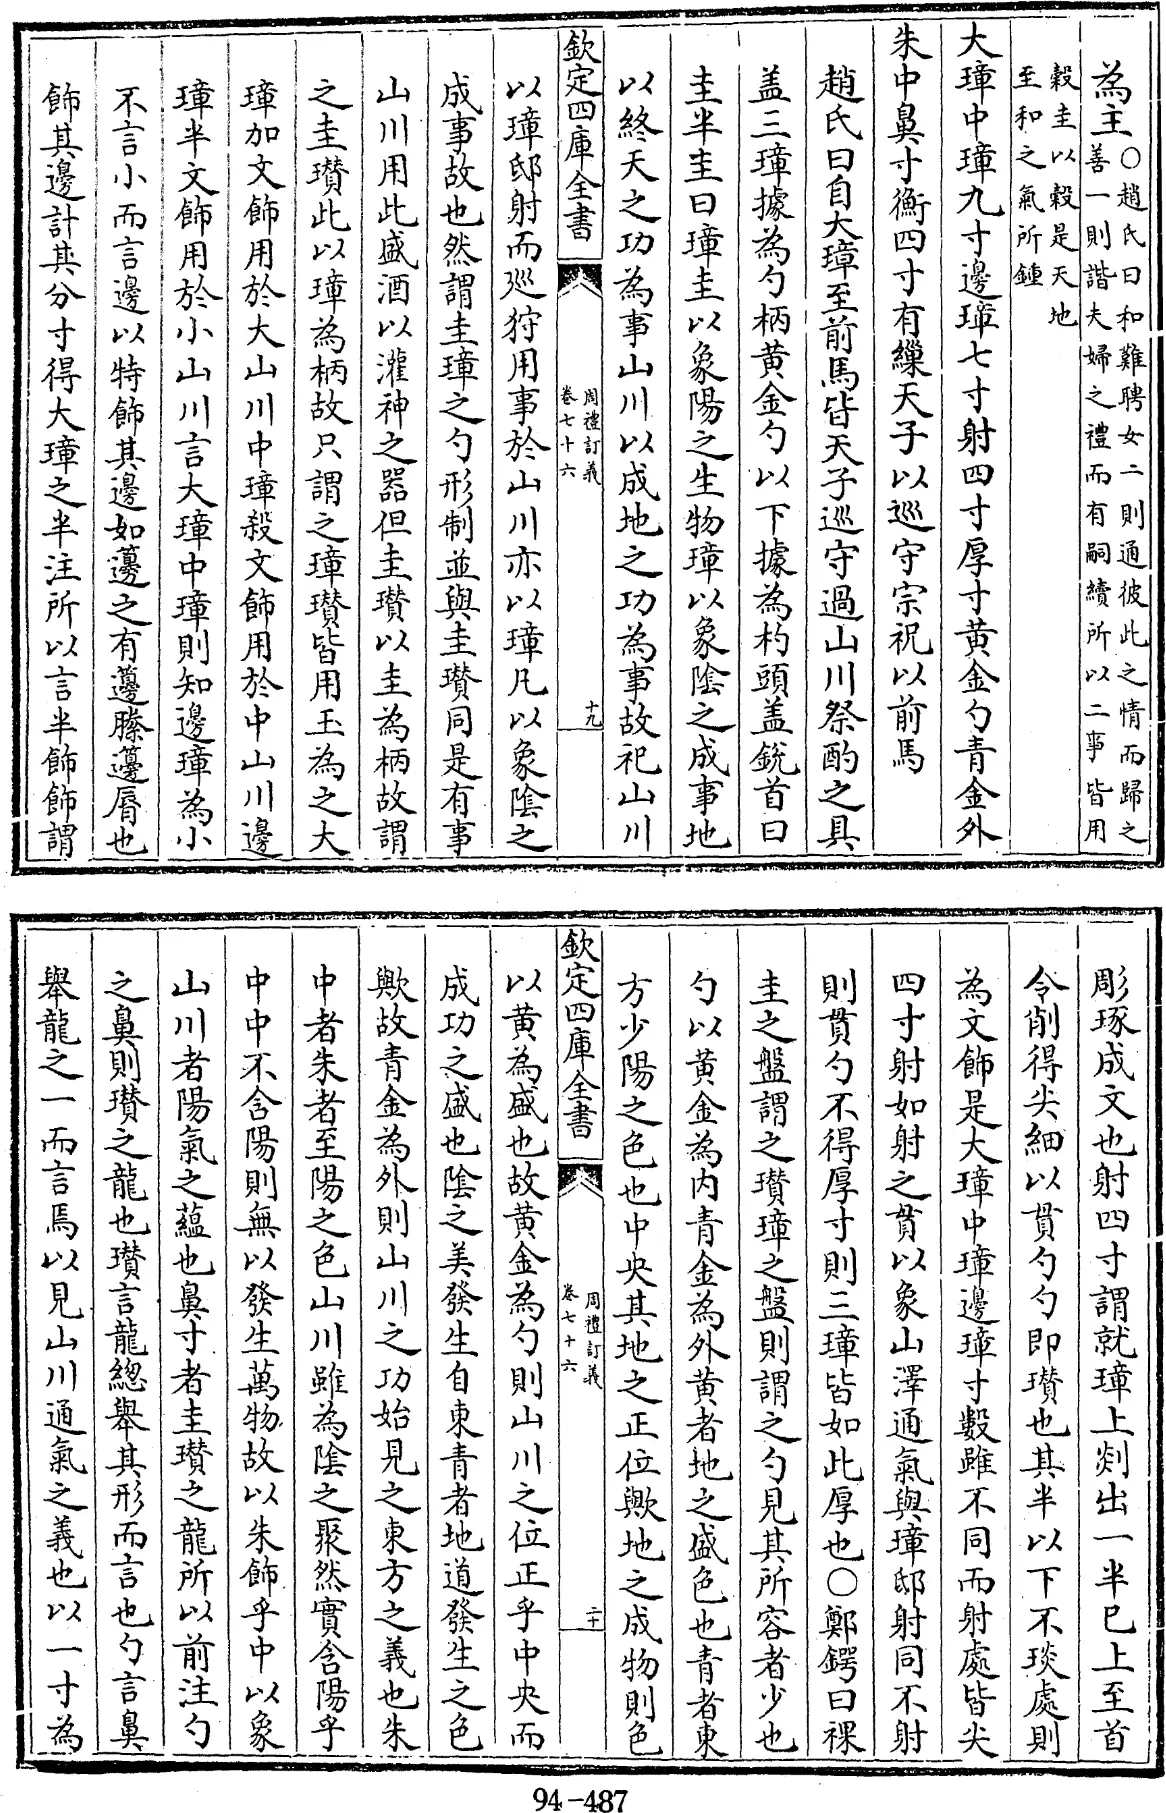 為主○趙氏曰和難聘女二則通彼此之情而歸之
善一則諧夫婦之禮而有嗣續所以二事皆用
穀圭以穀是天地
至和之氣所鍾
大璋中璋九寸邊璋七寸射四寸厚寸黄金勺青金外
朱中鼻寸衡四寸有繅天子以巡守宗祝以前馬
趙氏曰自大璋至前馬皆天子巡守過山川祭酌之具
盖三璋據為勺柄黄金勺以下據為杓頭盖銳首曰
圭半圭曰璋圭以象陽之生物璋以象隂之成事地
以終天之功為事山川以成地之功為事故祀山川
欽定四庫全書
周禮訂義
卷七十六
十九
以璋邸射而巡狩用事於山川亦以璋凡以象隂之
成事故也然謂圭璋之勺形制並與圭瓉同是有事
山川用此盛酒以灌神之器但圭瓉以圭為柄故謂
之圭瓉此以璋為柄故只謂之璋瓉皆用玉為之大
璋加文飾用於大山川中璋殺文飾用於中山川邊
璋半文飾用於小山川言大璋中璋則知邊璋為小
不言小而言邊以特飾其邊如籩之有籩縢籩脣也
飾其邊計其分寸得大璋之半注所以言半飾飾謂
彫琢成文也射四寸謂就璋上剡出一半已上至首
令削得尖細以貫勺勺即瓉也其半以下不琰處則
為文飾是大璋中璋邊璋寸數雖不同而射處皆尖
四寸射如射之貫以象山澤通氣與璋邸射同不射
則貫勺不得厚寸則三璋皆如此厚也○鄭鍔曰祼
圭之盤謂之瓉璋之盤則謂之勺見其所容者少也
勺以黄金為内青金為外黄者地之盛色也青者東
方少陽之色也中央其地之正位歟地之成物則色
欽定四庫全書
周禮訂義
卷七十六
二十
以黄為盛也故黄金為勺則山川之位正乎中央而
成功之盛也隂之美發生自東青者地道發生之色
歟故青金為外則山川之功始見之東方之義也朱
中者朱者至陽之色山川雖為隂之聚然實含陽乎
中中不含陽則無以發生萬物故以朱飾乎中以象
山川者陽氣之蘊也鼻寸者圭瓉之龍所以前注勺
之鼻則瓉之龍也瓉言龍總舉其形而言也勺言鼻
舉龍之一而言焉以見山川通氣之義也以一寸為
94-487